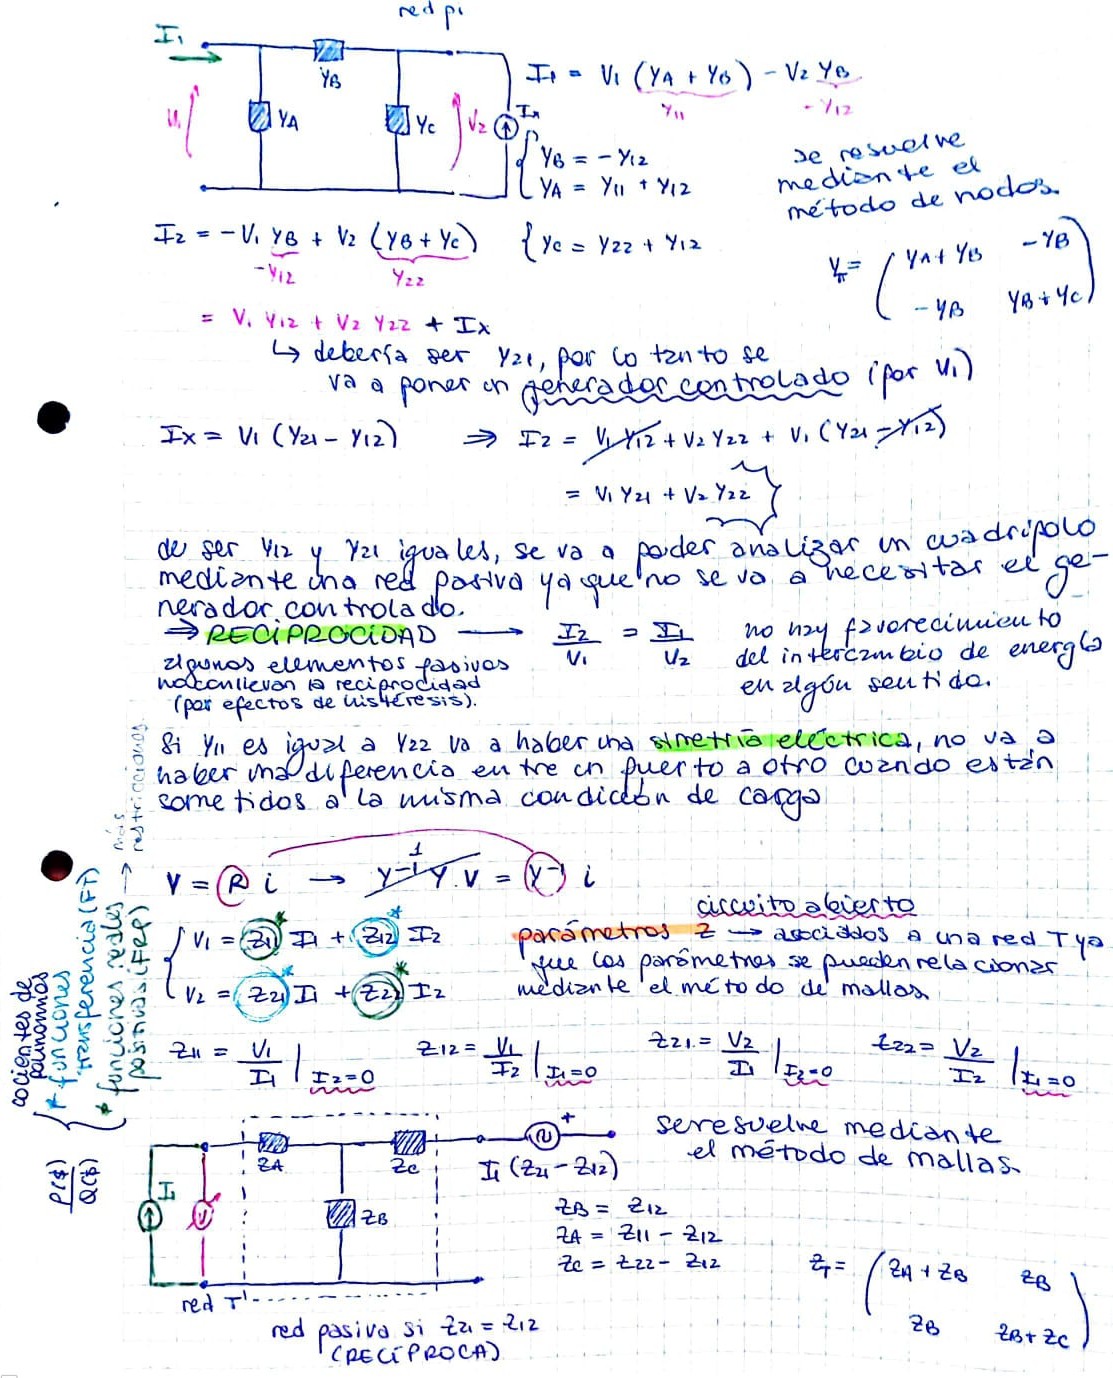 red pi
I1
YB
YA
Yc
V2
Ix
I1 = V1 (YA + YB) - V2 YB
Y11
- Y12
{ YB = -Y12
YA = Y11 + Y12
se resuelve
mediante el
método de nodos.
I2 = -V1 YB + V2 (YB + Yc)
{ Yc = Y22 + Y12
-Y12
Y22
Yπ = ( YA + YB  -YB
-YB  YB + Yc )
= V1 Y12 + V2 Y22 + Ix
↳ debería ser Y21, por lo tanto se
va a poner un generador controlado (por V1)
Ix = V1 (Y21 - Y12) ⇒ I2 = V1 Y12 + V2 Y22 + V1 (Y21 - Y12)
= V1 Y21 + V2 Y22
de ser Y12 y Y21 iguales, se va a poder analizar un cuadripolo
mediante una red pasiva ya que no se va a necesitar el ge-
nerador controlado.
⇒ RECIPROCIDAD → I2/V1 = I1/V2
no hay favorecimiento
del intercambio de energía
en algún sentido.
algunos elementos pasivos
no conllevan la reciprocidad
(por efectos de histéresis).
Si Y11 es igual a Y22 va a haber una simetría eléctrica, no va a
haber una diferencia entre un puerto a otro cuando están
sometidos a la misma condición de carga
V = R i → Y⁻¹ Y . V = Y⁻¹ i
1
circuito abierto
{ V1 = Z11 I1 + Z12 I2
V2 = Z21 I1 + Z22 I2
parámetros Z → asociados a una red T ya
que los parámetros se pueden relacionar
mediante el método de mallas.
Z11 = V1/I1 | I2=0
Z12 = V1/I2 | I1=0
Z21 = V2/I1 | I2=0
Z22 = V2/I2 | I1=0
cocientes de
polinomios
* funciones
transferencia (FT)
* funciones reales
positivas (FRP)
→ más
restricciones.
P($)/Q($)
I1
V
ZA
Zc
ZB
+
I1 (Z21 - Z12)
se resuelve mediante
el método de mallas.
ZB = Z12
ZA = Z11 - Z12
Zc = Z22 - Z12
ZT = ( ZA + ZB  ZB
ZB  ZB + Zc )
red T
red pasiva si Z21 = Z12
(RECÍPROCA)